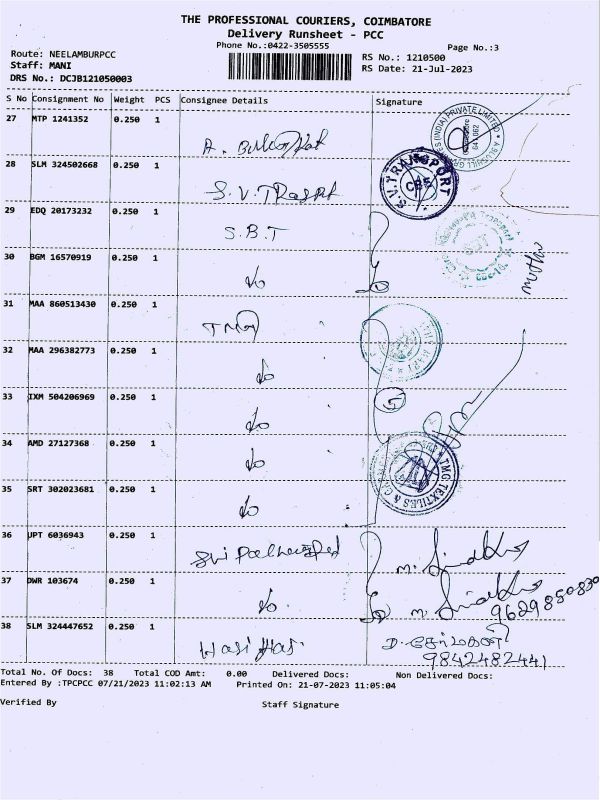 THE PROFESSIONAL COURIERS, COIMBATORE
Delivery Runsheet - PCC
Phone No.:0422-3505555
Page No.:3
Route: NEELAMBURPCC
RS No.: 1210500
Staff: MANI
RS Date: 21-Jul-2023
DRS No.: DCJB121050003
S No Consignment No Weight PCS Consignee Details Signature
27 MTP 1241352 0.250 1
28 SLM 324502668 0.250 1 S.V.
29 EDQ 20173232 0.250 1 S.B.T
30 BGM 16570919 0.250 1
31 MAA 860513430 0.250 1
32 MAA 296382773 0.250 1
33 IXM 504206969 0.250 1 5
34 AMD 27127368 0.250 1
TMG TEXTILES &
35 SRT 302023681 0.250 1
36 JPT 6036943 0.250 1 Sri
37 DWR 103674 0.250 1 9629850830
38 SLM 324447652 0.250 1 Hari Has. 9842482441
Total No. Of Docs: 38 Total COD Amt: 0.00 Delivered Docs: Non Delivered Docs:
Entered By :TPCPCC 07/21/2023 11:02:13 AM Printed On: 21-07-2023 11:05:04
Verified By Staff Signature